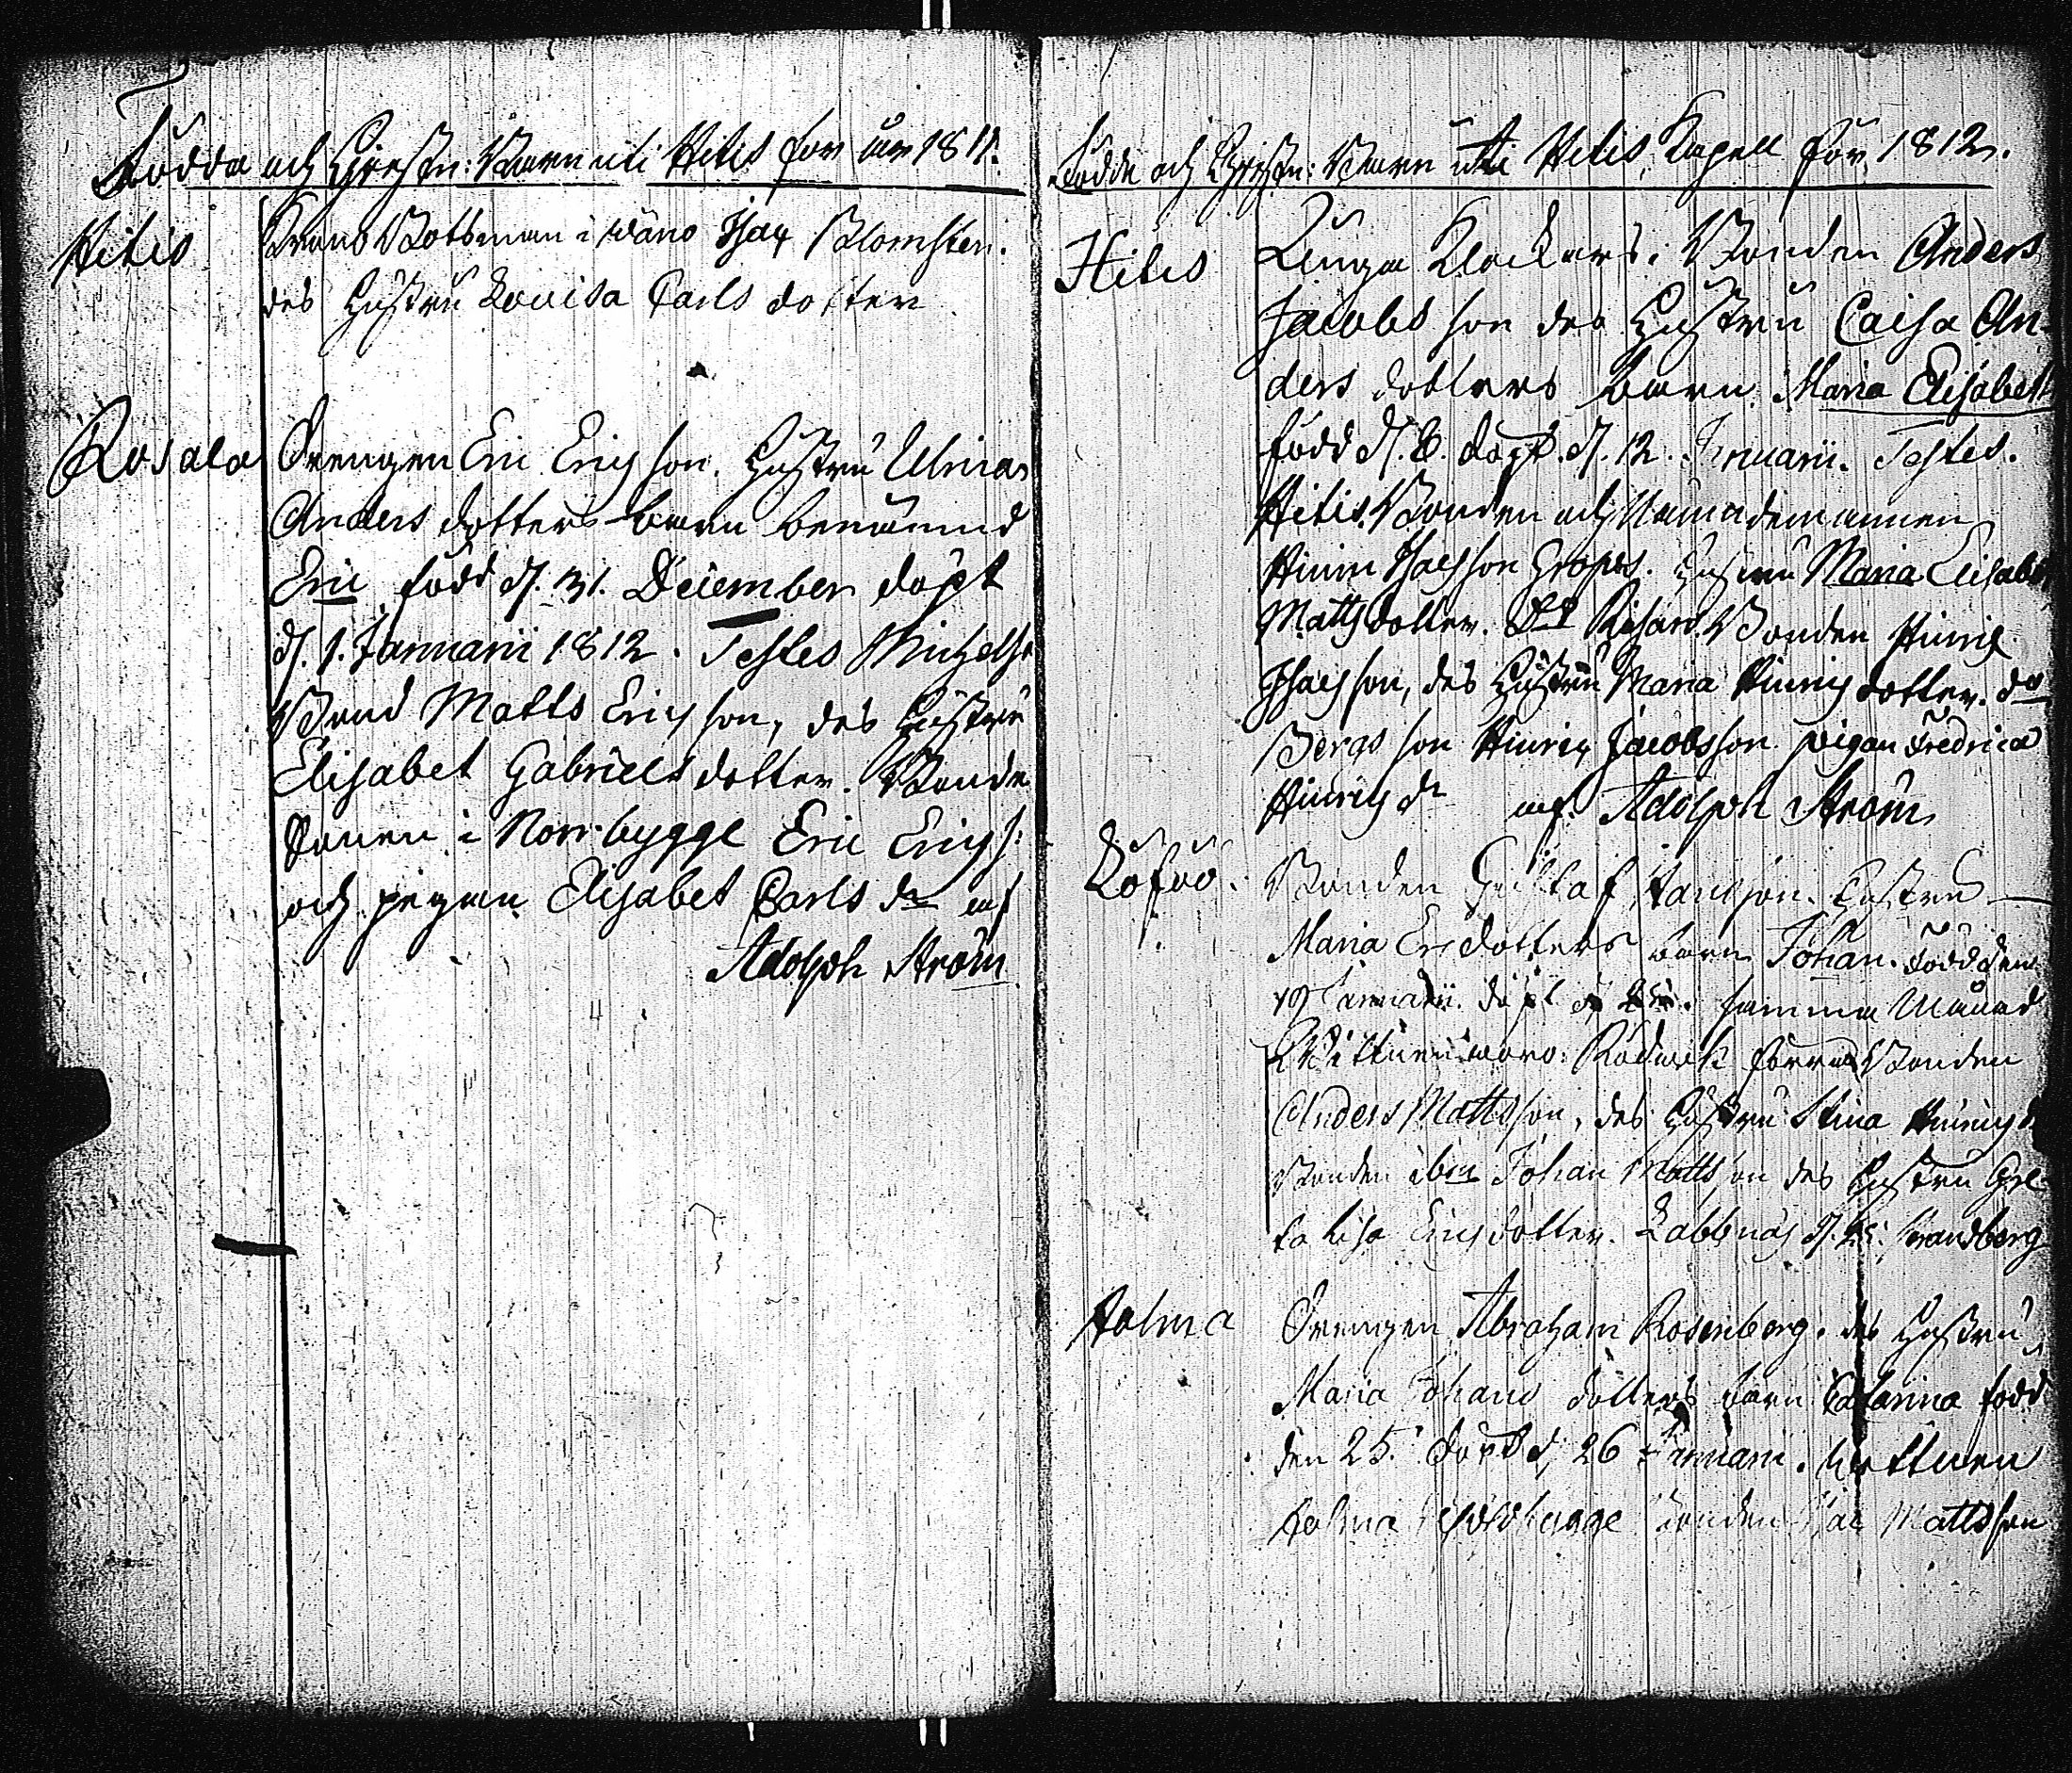 Födda och Christn: Barn uti Hitis for år 1811.
Hitis
Krono Båtsman i wäno Isac Blomster.
des Hustru Lovisa Carls dotter
Rosala
Drengen Eric Ericsson. Hustru Ulrica
Anders dotters barn benämnd
Eric född d. 31. December döpt
d. 1. Januarii 1812. Testes
Bond Matts Ericsson, des Hustru
Elisabet Gabriels dotter. Bonde
Sonen i Norrbygge Eric Erics:
och pigan Elisabet Carls dr af
Adolph Ström
Födda och Christn: Barn utti Hitis Kapell för 1812.
Hitis
Klockars. Bonden Anders
Jacobs son des Hustru Caisa An-
ders dotters barn Maria Elisabeth
född d. 6. döpt. d. 12. Januarii. Testes.
Hitis. Bonden och Nämndemannen
Hinric Isacsson. Hustru Maria Elisabet
Mattsdotter. Bonden Hinric
Isacsson, des Hustru Maria Hinricsdotter. do
Bergs son Hinric Jacobsson pigan Fredrica
Hinrics dr af Adolph Ström
Löfvö.
Bonden Gustaf. Hustru
Maria Ersdotters barn Johan. född den
19 Januarii. döpt d samma Månad
Wittnen voro: Rödwik förra Bonden
Anders Mattsson, des Hustru Stina Hinrics
Bonden ibm Johan Mattsson des Hustru Gre-
ta Lisa Ericsdotter. Labbnäs Strandberg
Holma
Drengen Abraham Rosenberg. des Hustru
Maria Johans dotters barn Catarina född
den 25. döpt d. 26 Januarii. wittnen
Holma bonden Isac Mattsson